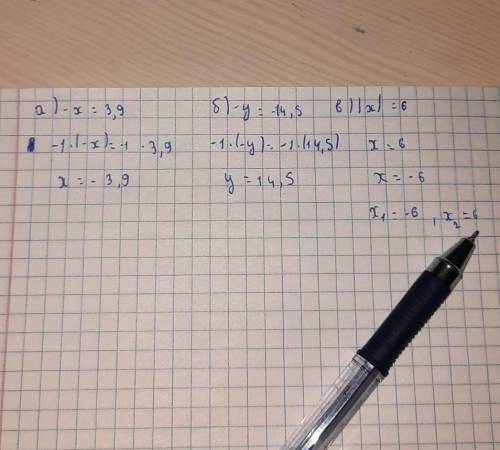 а) -x = 3,9
-1·(-x)=-1 · 3,9
x = - 3,9
б) -y = -14,5
-1·(-y)=-1·(14,5)
y = 14,5
в) |x| = 6
x = 6
x = -6
x₁ = -6 , x₂ = 6